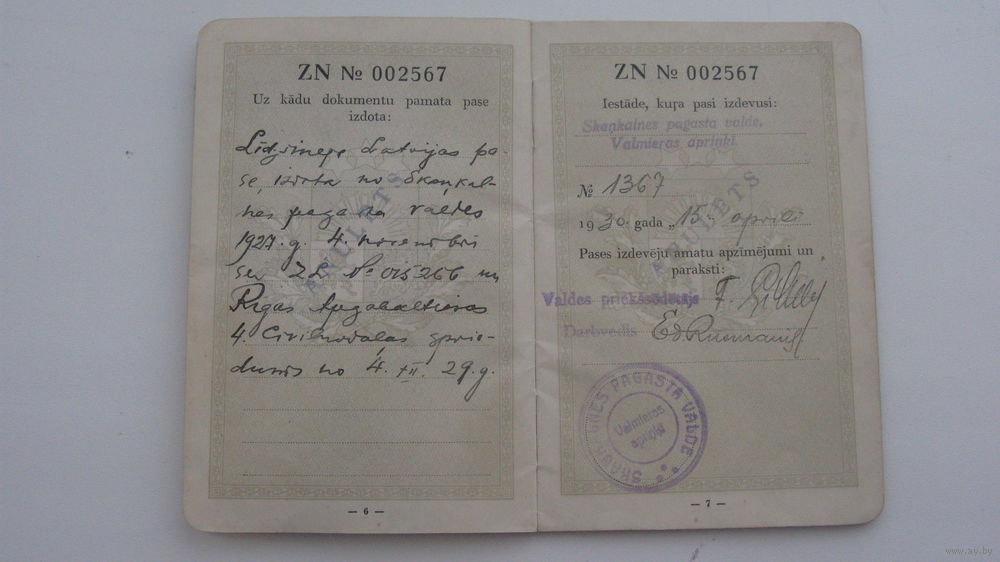 ZN № 002567
Uz kādu dokumentu pamata pase
izdota:
Līdzšineje Latvijas pa-
se, izdota no Skaņkal-
nes pagasta valdes
1927. g. 4. novembrī
ser ZL № 015266 un
Rīgas Apgabaltiesas
4. Civilnodaļas sprie-
dums no 4. XII. 29. g.
ANULETS
— 6 —
ZN № 002567
Iestāde, kuŗa pasi izdevusi:
Skaņkalnes pagasta valde,
Valmieras apriņķī
№ 1367
1930. gada „15" aprīlī
Pases izdevēju amatu apzīmējumi un
paraksti:
Valdes priekšsēdētājs F.
Darbvedis Ed.
ANULETS
PAGASTA VALDE
Valmieras
apriņķī
— 7 —
www.ay.by